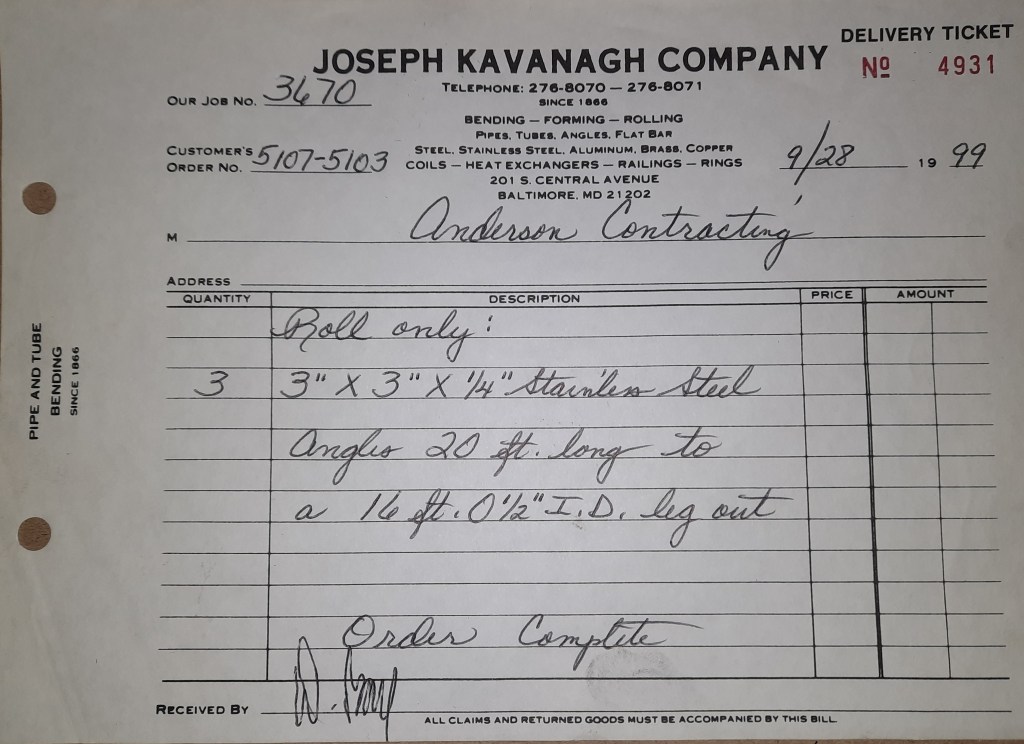 DELIVERY TICKET
JOSEPH KAVANAGH COMPANY
Nº 4931
TELEPHONE: 276-8070 — 276-8071
SINCE 1866
OUR JOB NO. 3670
BENDING — FORMING — ROLLING
PIPES, TUBES, ANGLES, FLAT BAR
STEEL, STAINLESS STEEL, ALUMINUM, BRASS, COPPER
COILS — HEAT EXCHANGERS — RAILINGS — RINGS
201 S. CENTRAL AVENUE
BALTIMORE, MD 21202
CUSTOMER'S
ORDER NO. 5107-5103
9/28 19 99
M Anderson Contracting
ADDRESS
QUANTITY DESCRIPTION PRICE AMOUNT
Roll only:
3 3" X 3" X 1/4" Stainless Steel
Angles 20 ft. long to
a 16 ft. 0 1/2" I.D. leg out
Order Complete
RECEIVED BY
ALL CLAIMS AND RETURNED GOODS MUST BE ACCOMPANIED BY THIS BILL
PIPE AND TUBE
BENDING
SINCE 1866